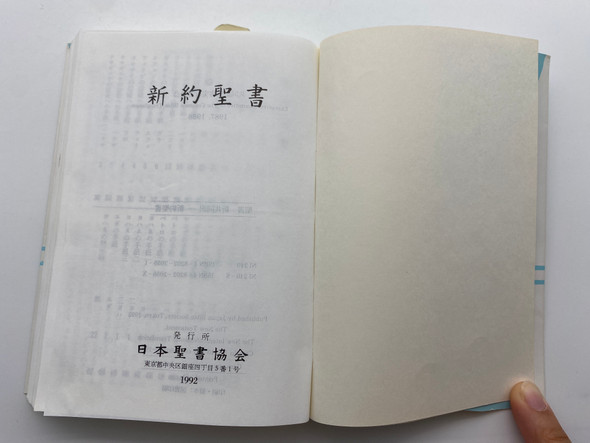 新約聖書
発行所
日本聖書協会
東京都中央区銀座四丁目5番1号
1992